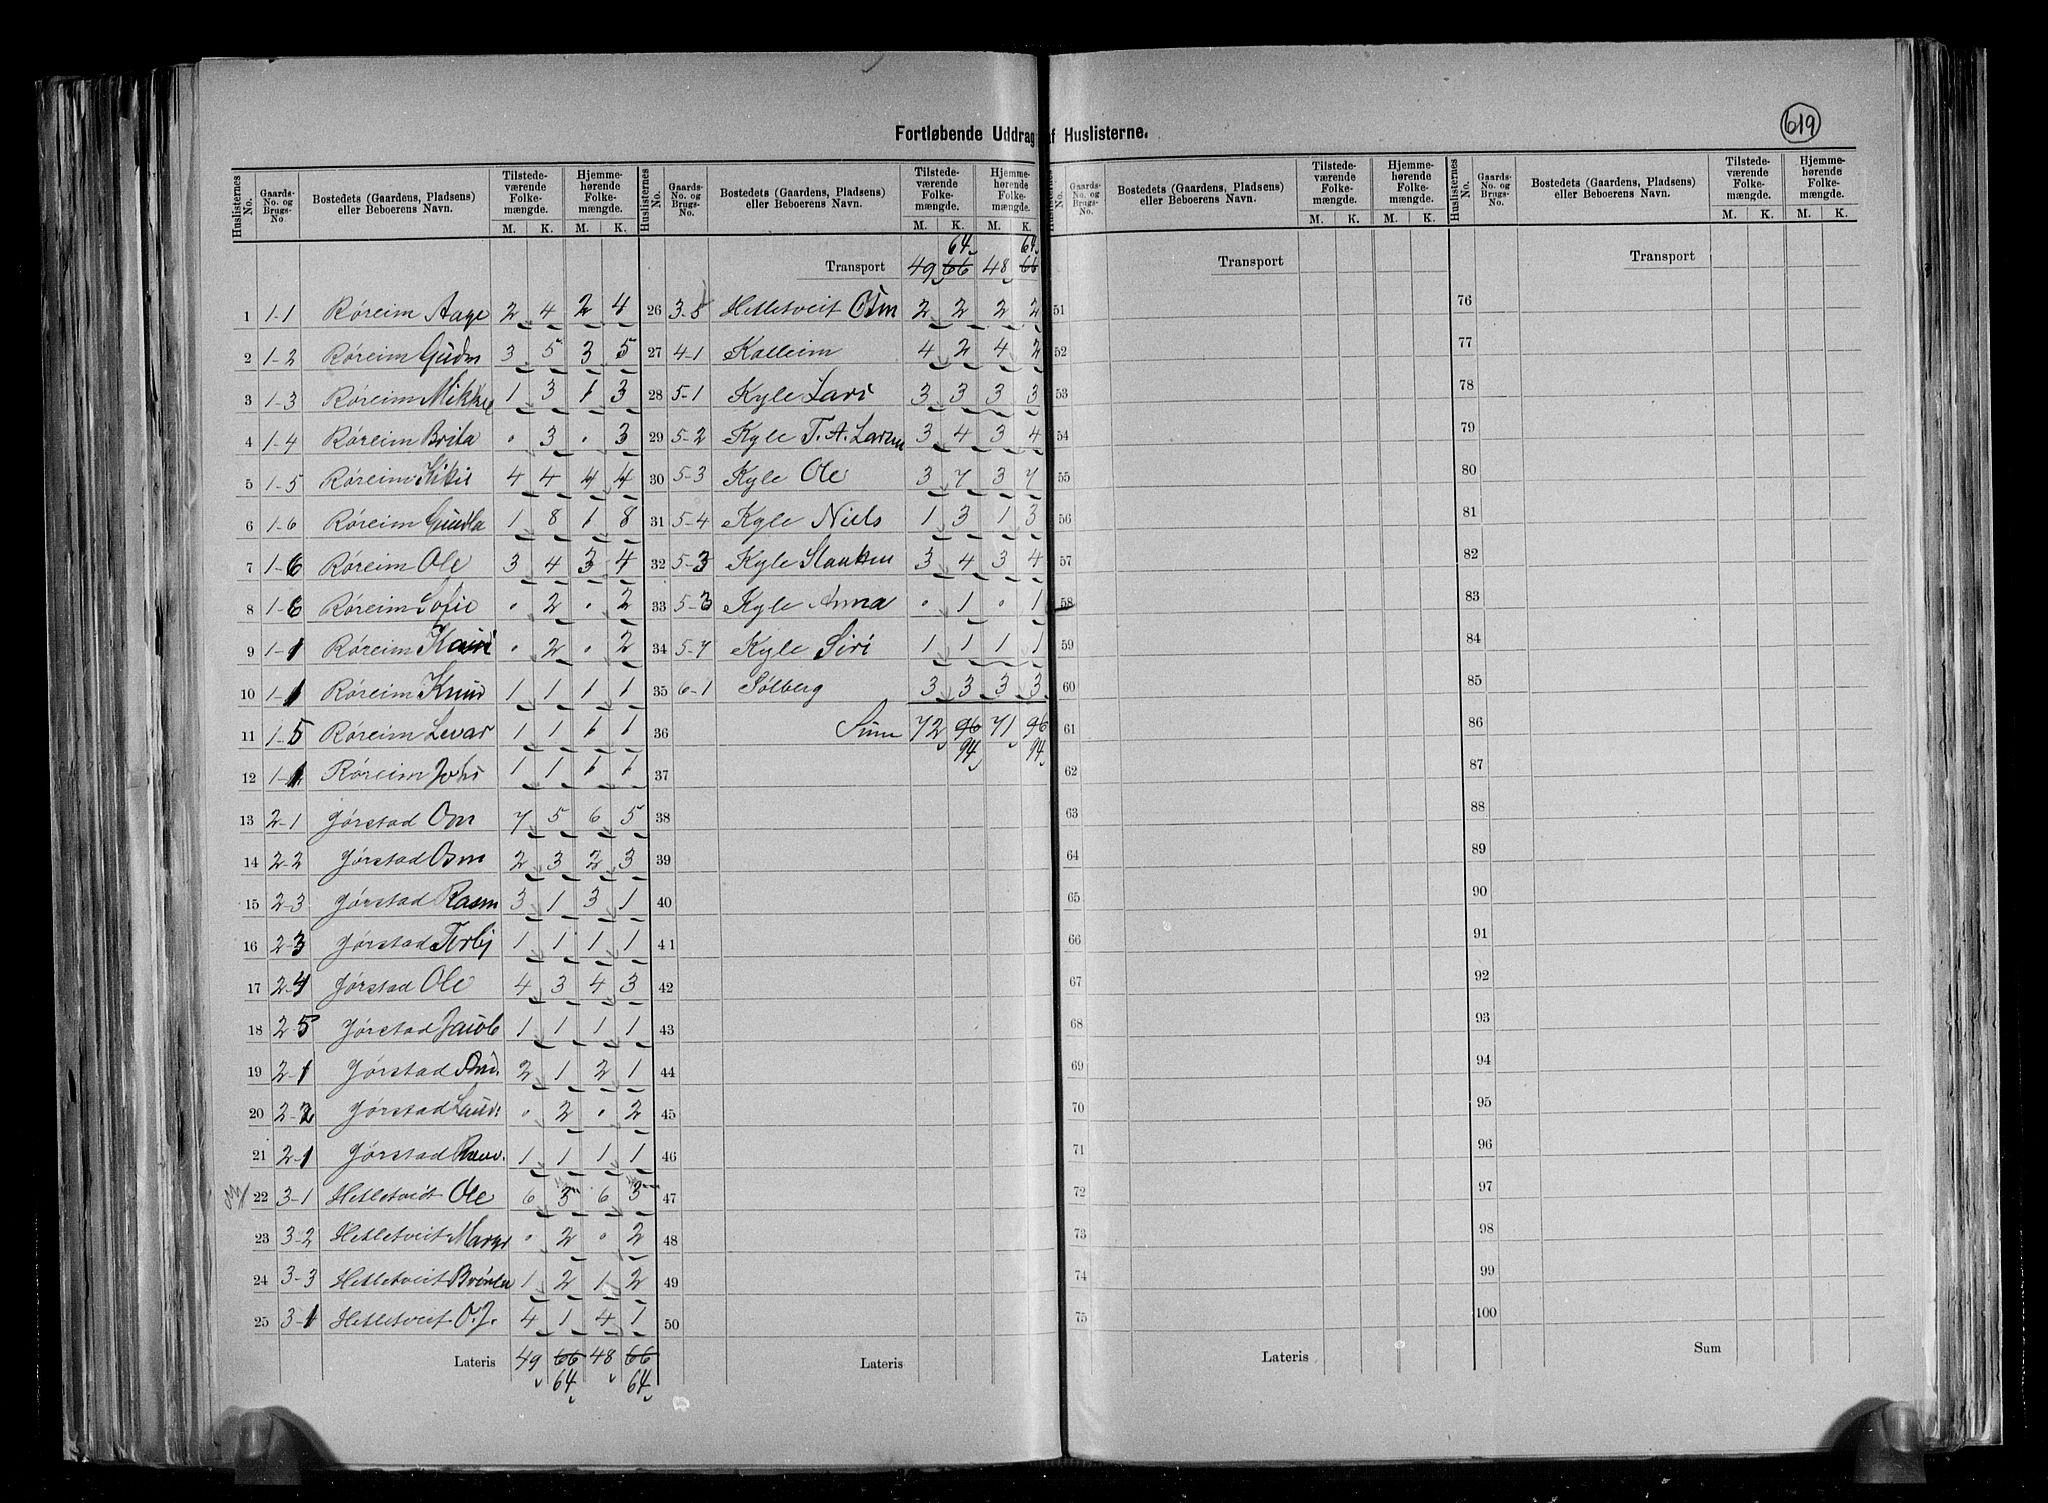 619
Fortløbende Uddrag af Huslisterne.
Huslisternes No. | Gaards-No. og Brugs-No. | Bostedets (Gaardens, Pladsens) eller Beboerens Navn. | Tilstedeværende Folkemængde. M. K. | Hjemmehørende Folkemængde. M. K.
1 1-1 Røreim Aage 2 4 2 4
2 1-2 Røreim Gudm 3 5 3 5
3 1-3 Røreim Mikkel 1 3 1 3
4 1-4 Røreim Brita . 3 . 3
5 1-5 Røreim 4 4 4 4
6 1-6 Røreim 1 8 1 8
7 1-6 Røreim Ole 3 4 3 4
8 1-6 Røreim Sofie . 2 . 2
9 1-1 Røreim Kari . 2 . 2
10 1-1 Røreim Knud 1 1 1 1
11 1-5 Røreim 1 1 1 1
12 1-1 Røreim Johs 1 1 1 1
13 2-1 Jørstad Osm 7 5 6 5
14 2-2 Jørstad Osm 2 3 2 3
15 2-3 Jørstad Rasm 3 1 3 1
16 2-3 Jørstad Terbj 1 1 1 1
17 2-4 Jørstad Ole 4 3 4 3
18 2-5 Jørstad Jacob 1 1 1 1
19 2-1 Jørstad 2 1 2 1
20 2-2 Jørstad . 2 . 2
21 2-1 Jørstad 1 1 1 1
22 3-1 Hetletveit Ole 6 3 6 3
23 3-2 Hetletveit . 2 . 2
24 3-3 Hetletveit 1 2 1 2
25 3-1 Hetletveit O. J. 4 1 4 1
Lateris 49 66 48 66
64 64
Huslisternes No. | Gaards-No. og Brugs-No. | Bostedets (Gaardens, Pladsens) eller Beboerens Navn. | Tilstedeværende Folkemængde. M. K. | Hjemmehørende Folkemængde. M. K.
64 64
Transport 49 66 48 66
26 3-5 Hetletveit Osm 2 2 2 2
27 4-1 Kalleim 4 2 4 2
28 5-1 Kyle Lars 3 3 3 3
29 5-2 Kyle T. A. Larsen 3 4 3 4
30 5-3 Kyle Ole 3 7 3 7
31 5-4 Kyle Niels 1 3 1 3
32 5-3 Kyle 3 4 3 4
33 5-3 Kyle Anna . 1 . 1
34 5-7 Kyle Siri 1 1 1 1
35 6-1 Solberg 3 3 3 3
36 Sum 72 96 71 96
94 94
37
38
39
40
41
42
43
44
45
46
47
48
49
50
Lateris
Huslisternes No. | Gaards-No. og Brugs-No. | Bostedets (Gaardens, Pladsens) eller Beboerens Navn. | Tilstedeværende Folkemængde. M. K. | Hjemmehørende Folkemængde. M. K.
Transport
51
52
53
54
55
56
57
58
59
60
61
62
63
64
65
66
67
68
69
70
71
72
73
74
75
Lateris
Huslisternes No. | Gaards-No. og Brugs-No. | Bostedets (Gaardens, Pladsens) eller Beboerens Navn. | Tilstedeværende Folkemængde. M. K. | Hjemmehørende Folkemængde. M. K.
Transport
76
77
78
79
80
81
82
83
84
85
86
87
88
89
90
91
92
93
94
95
96
97
98
99
100
Sum